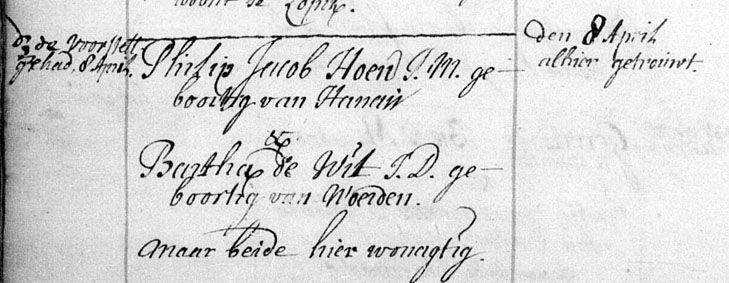 woont te Lopik.
de 3de Voorstell.
gehad. 8 April.
Philip Jacob Hoend J.M. ge-
boortig van Hanau
&
Bartha de Wit J.D. ge-
boortig van Woerden.
maar beide hier wonagtig.
den 8 April
alhier getrouwt.